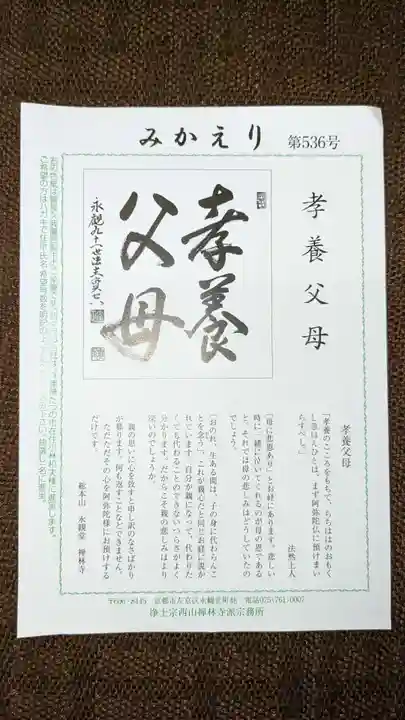 みかえり 第536号
孝養父母
孝養
父母
孝養父母
「孝養のこころをもちて、ちちははのおもく
し思はんひとは、まず阿弥陀仏に預けまい
らすべし。」
法然上人
「母に悲恩あり」とお経にあります。悲しい
時に一緒に泣いてくれるのが母の恩である
と。それでは母の悲しみはどうしていたの
でしょう。
「おのれ、生ある間は、子の身に代わらんこ
とを念う」。これが親心だと同じお経に説か
れています。自分が親になって、代わりた
くても代わることのできないつらさがよく
分かります。だからこそ親の悲しみはより
深いのでしょうか。
親の思いに心を致すと申し訳のなさばかり
が募ります。何も返すことなどできません。
ただただその心を阿弥陀様にお預けする
だけです。
総本山 永観堂 禅林寺
〒606-8445 京都市左京区永観堂町48 電話075(761)0007
浄土宗西山禅林寺派宗務所